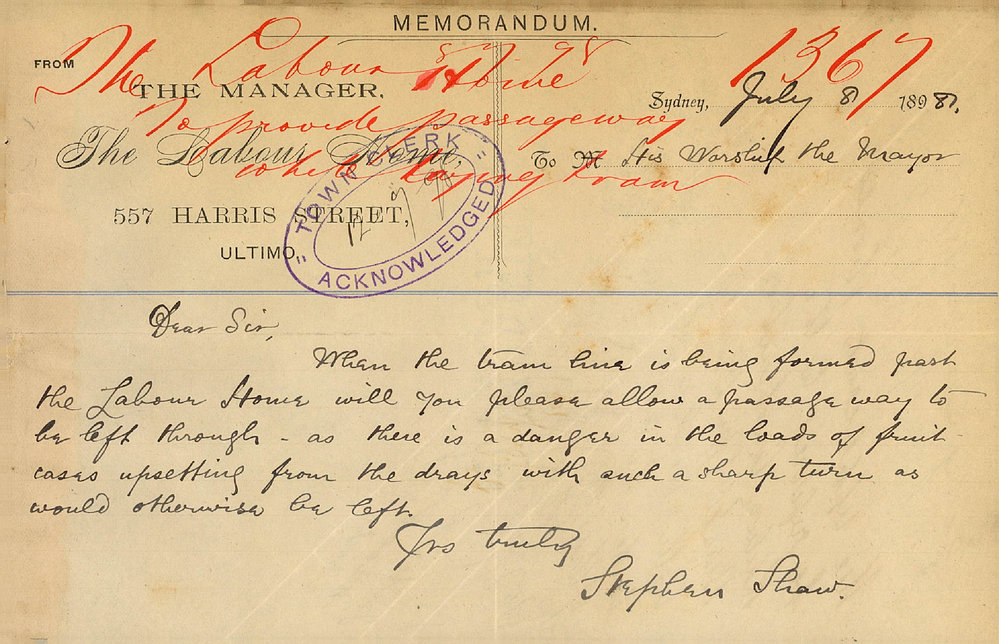 MEMORANDUM.
8 7 98
The Labour Home
1367
FROM
THE MANAGER,
Sydney, July 8 1898.
To provide passageway
The Labour Home,
To M His Worship the Mayor
while laying tram
557 HARRIS STREET,
ULTIMO.
"TOWN CLERK"
12/7/98
ACKNOWLEDGED
Dear Sir,
When the tram line is being formed past
the Labour Home will you please allow a passage way to
be left through - as there is a danger in the loads of fruit
cases upsetting from the drays with such a sharp turn as
would otherwise be left.
Yrs truly
Stephen Shaw.